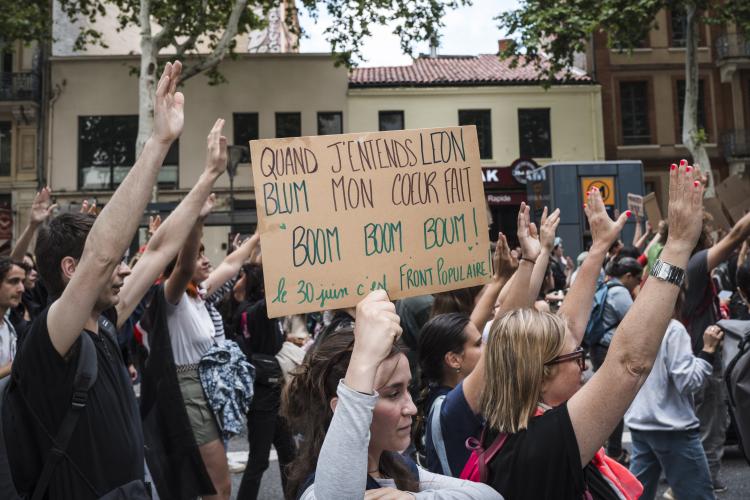 QUAND J'ENTENDS LEON
BLUM MON COEUR FAIT
BOOM BOOM BOUM!
le 30 juin c'est FRONT POPULAIRE!
AK
Rapide